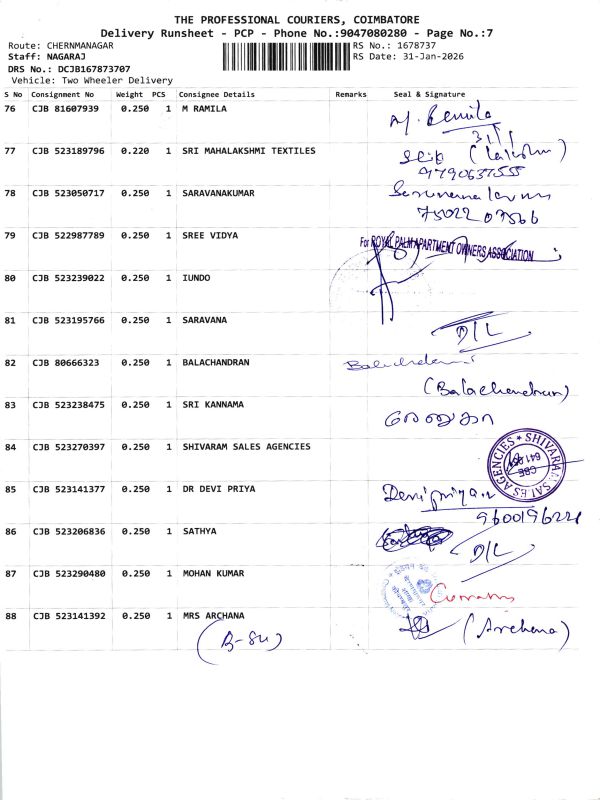 THE PROFESSIONAL COURIERS, COIMBATORE
Delivery Runsheet - PCP - Phone No.:9047080280 - Page No.:7
Route: CHERNMANAGAR RS No.: 1678737
Staff: NAGARAJ RS Date: 31-Jan-2026
DRS No.: DCJB167873707
Vehicle: Two Wheeler Delivery
S No Consignment No Weight PCS Consignee Details Remarks Seal & Signature
76 CJB 81607939 0.250 1 M RAMILA
77 CJB 523189796 0.220 1 SRI MAHALAKSHMI TEXTILES
9790637555
78 CJB 523050717 0.250 1 SARAVANAKUMAR
75022 07566
79 CJB 522987789 0.250 1 SREE VIDYA
For ROYAL PALM APARTMENT OWNERS ASSOCIATION
80 CJB 523239022 0.250 1 IUNDO
81 CJB 523195766 0.250 1 SARAVANA
D/L
82 CJB 80666323 0.250 1 BALACHANDRAN
(Balachandran)
83 CJB 523238475 0.250 1 SRI KANNAMA
84 CJB 523270397 0.250 1 SHIVARAM SALES AGENCIES
SHIVARAM SALES AGENCIES
CBE
85 CJB 523141377 0.250 1 DR DEVI PRIYA
Devipriya
86 CJB 523206836 0.250 1 SATHYA
D/L
87 CJB 523290480 0.250 1 MOHAN KUMAR
88 CJB 523141392 0.250 1 MRS ARCHANA
(Archana)